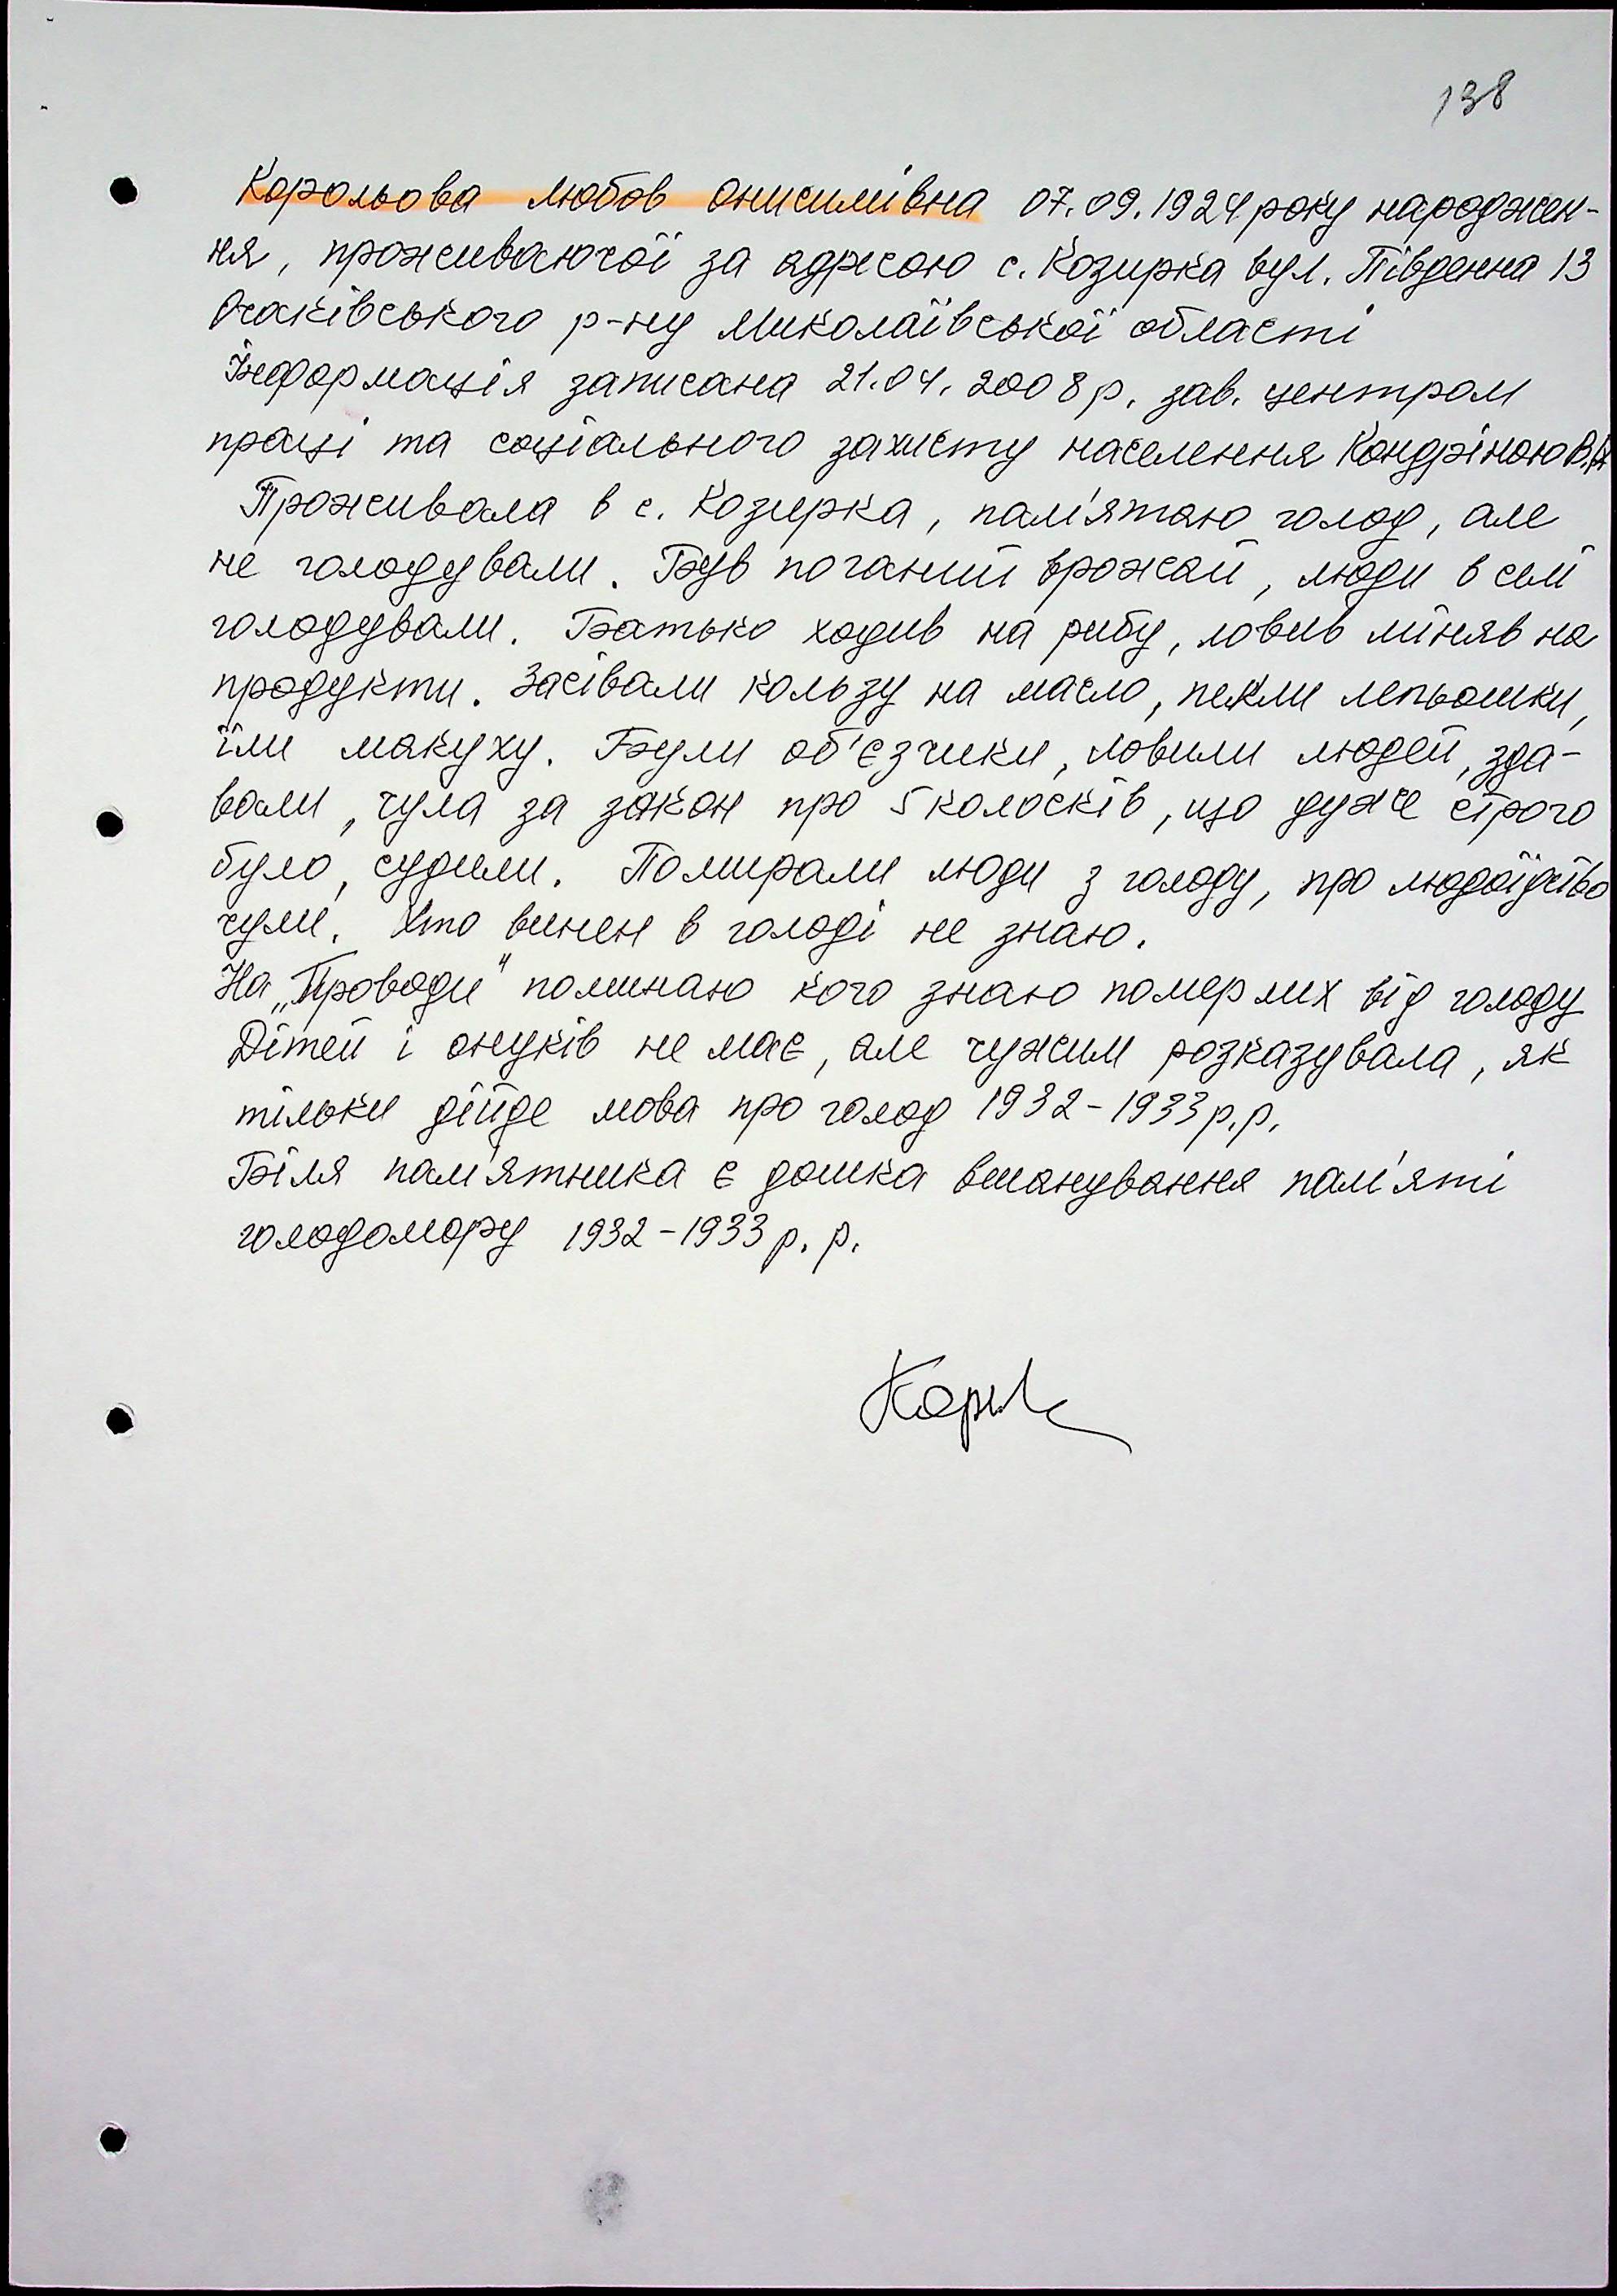 138
Корольова Любов Онисимівна 07.09.1924 року народжен-
ня, проживаючої за адресою с. Козирка вул. Південна 13
Очаківського р-ну Миколаївської області
Інформація записана 21.04.2008 р. зав. центром
праці та соціального захисту населення Кондріною В.
Проживала в с. Козирка, пам'ятаю голод, але
не голодували. Був поганий врожай, люди в селі
голодували. Батько ходив на рибу, ловив міняв на
продукти. Засівали кользу на масло, пекли лепьошки,
їли макуху. Були об'єзчики, ловили людей, зда-
вали, чула за закон про 5 колосків, що дуже строго
було, судили. Помирали люди з голоду, про людоїдство
чули. Хто винен в голоді не знаю.
На „Проводи" поминаю кого знаю померлих від голоду
Дітей і онуків не має, але чужим розказувала, як
тільки дійде мова про голод 1932-1933 р.р.
Біля пам'ятника є дошка вшанування пам'яті
голодомору 1932-1933 р. р.